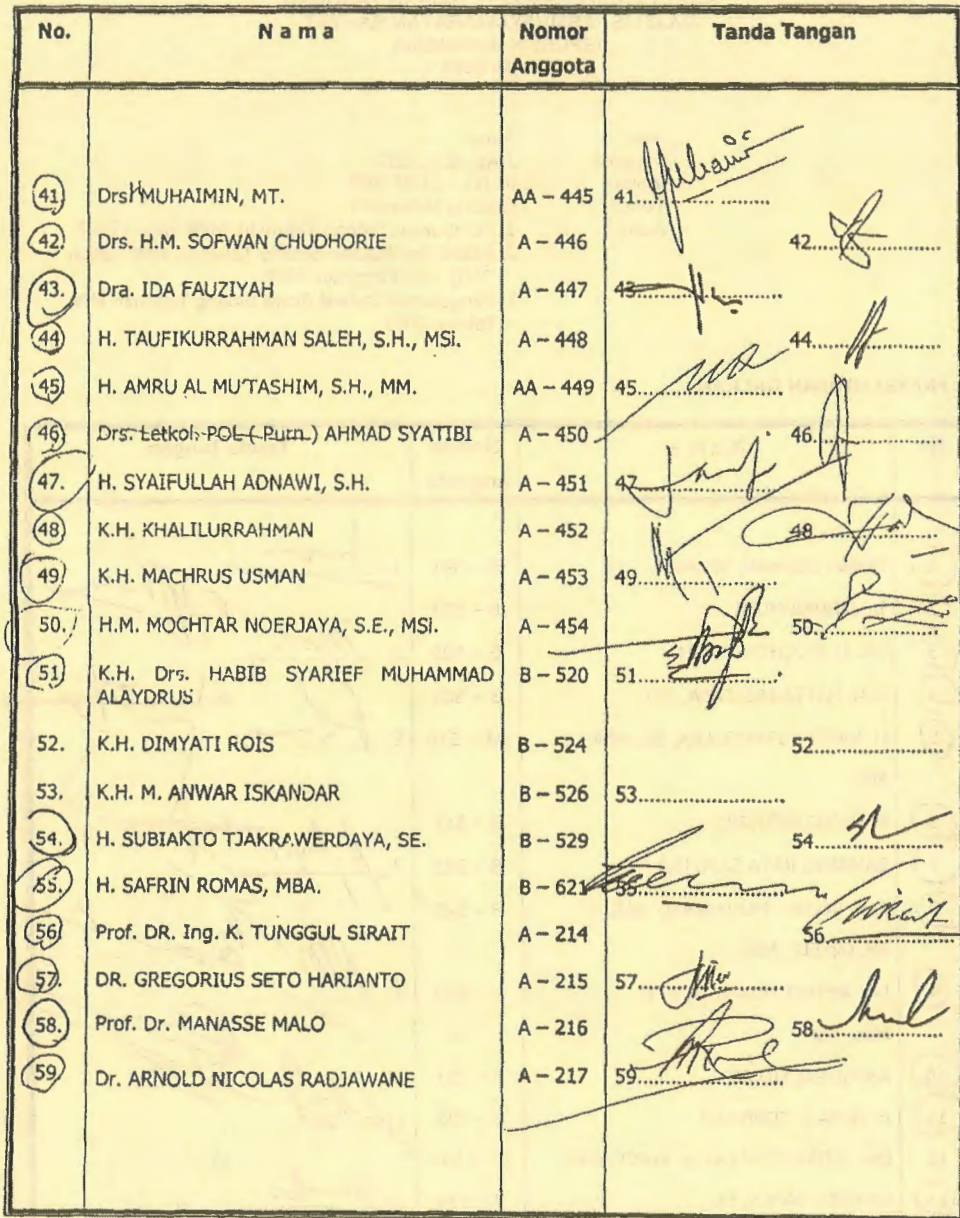 No. Nama Nomor Anggota Tanda Tangan
41 Drs H MUHAIMIN, MT. AA – 445 41
42. Drs. H.M. SOFWAN CHUDHORIE A – 446 42
43. Dra. IDA FAUZIYAH A – 447 43
44 H. TAUFIKURRAHMAN SALEH, S.H., MSi. A – 448 44
45. H. AMRU AL MU'TASHIM, S.H., MM. AA – 449 45
46) Drs. Letkol POL (Purn.) AHMAD SYATIBI A – 450 46
47. H. SYAIFULLAH ADNAWI, S.H. A – 451 47
48) K.H. KHALILURRAHMAN A – 452 48
49. K.H. MACHRUS USMAN A – 453 49
50. H.M. MOCHTAR NOERJAYA, S.E., MSi. A – 454 50
51 K.H. Drs. HABIB SYARIEF MUHAMMAD B – 520 51
ALAYDRUS
52. K.H. DIMYATI ROIS B – 524 52
53. K.H. M. ANWAR ISKANDAR B – 526 53
54. H. SUBIAKTO TJAKRAWERDAYA, SE. B – 529 54
55. H. SAFRIN ROMAS, MBA. B – 621 55
56 Prof. DR. Ing. K. TUNGGUL SIRAIT A – 214 56 Sirait
57. DR. GREGORIUS SETO HARIANTO A – 215 57
58. Prof. Dr. MANASSE MALO A – 216 58
59 Dr. ARNOLD NICOLAS RADJAWANE A – 217 59